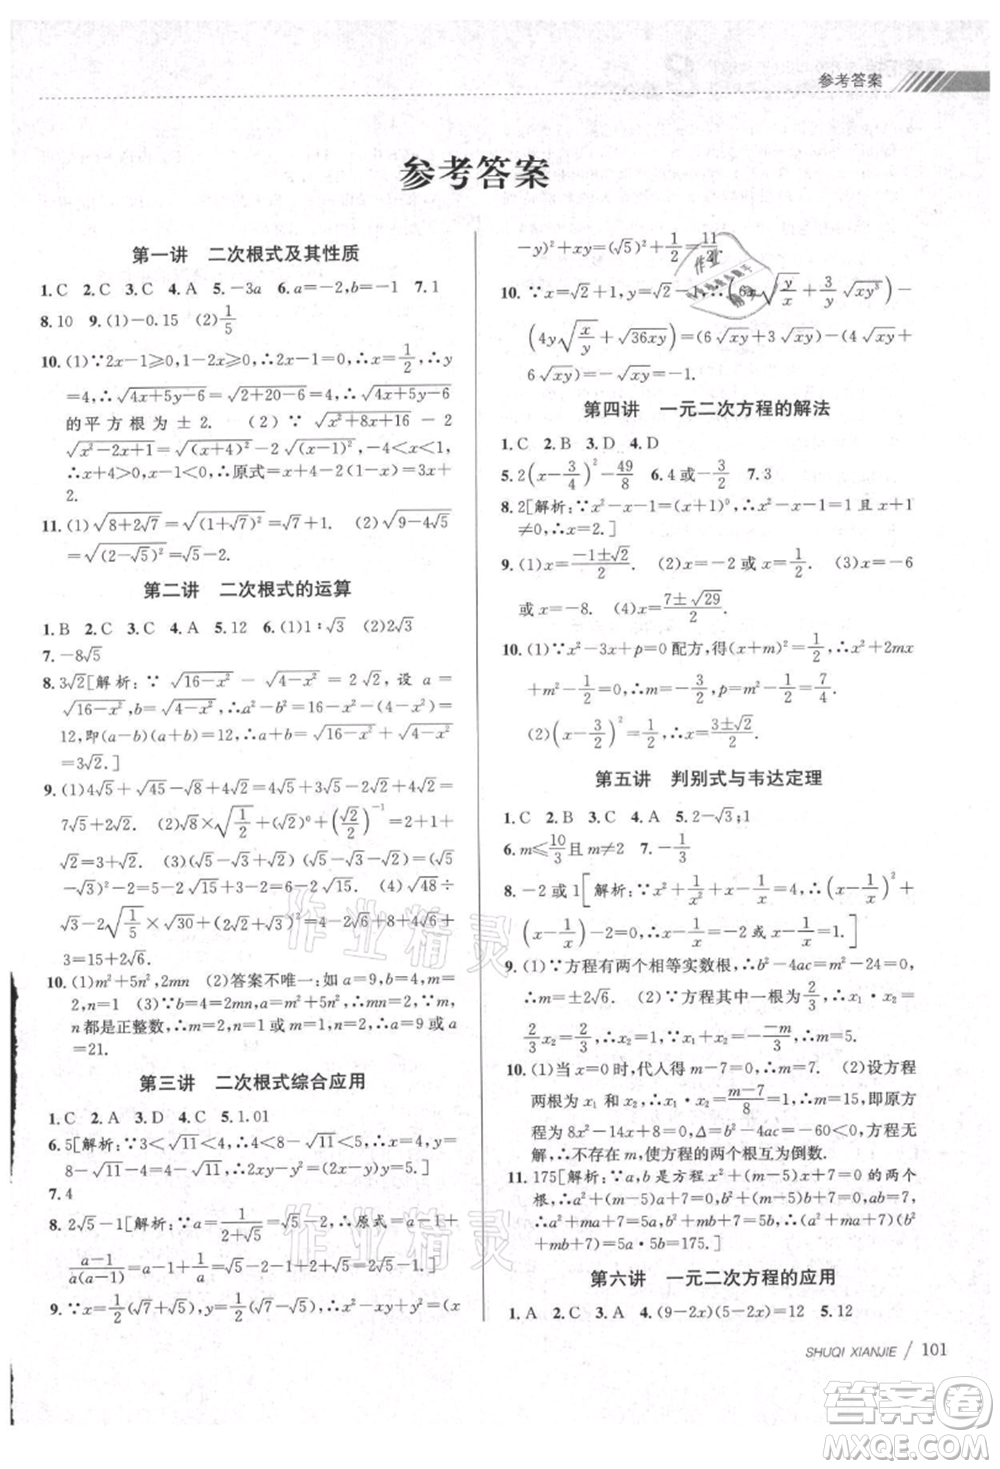 参考答案
参考答案
第一讲 二次根式及其性质
1.C 2.C 3.C 4.A 5.-3a 6.a=-2,b=-2 7.1
8.10 9.(1)-0.15 (2)1/5
10.(1)∵2x-1≥0,1-2x≥0,∴x=1/2,∴y
=4,∴√(4x+5y-6)=√(2+20-6)=4,∴√(4x+5y-6)
的平方根为±2. (2)∵√(x²+8x+16)-
√(x²-2x+1)=√((x+4)²)-√((x-1)²)=3x+2,
∴x+4>0,x-1<0,∴原式=x+4-(1-x)=3x+
2.
11.(1)√(8+2√7)=√((1+√7)²)=√7+1. (2)√(9-4√5)
=√((2-√5)²)=√5-2.
第二讲 二次根式的运算
1.B 2.C 3.C 4.A 5.12 6.(1)1∶√3 (2)2√3
7.-8√5
8.3√2[解析:∵√(16-x²)-√(4-x²)=2√2,设a=
√(16-x²),b=√(4-x²),∴a²-b²=16-x²-4+x²=
12,即(a-b)(a+b)=12,∴a+b=√(16-x²)+√(4-x²)
=3√2.]
9.(1)4√5+√45-√8+4√2=4√5+3√5-2√2+4√2=
7√5+2√2. (2)√8×√(1/2)+√2+(√2/2)⁻¹=2+1+
√2=3+√2. (3)(√5-√2)(√5+√2)+(√3-1)²=
5-2+3-2√3+1=7-2√3. (4)√48÷√3-
2√(1/5)×√30+(2√2+√3)²=4-2√6+8+4√6+
3=15+2√6.
10.(1)m²+5n²,2mn (2)答案不唯一:如a=9,b=4,m=
2,n=1 (3)∵b=4=2mn,∴mn=2,∵a,m,
n都是正整数,∴m=2,n=1或m=1,n=2,∴a=9或a
=21.
第三讲 二次根式综合应用
1.C 2.A 3.D 4.C 5.1.01
6.5[解析:∵3<√11<4,∴4<8-√11<5,∴x=4,y=
8-√11-4=4-√11,∴2xy-y²=5.]
7.4
8.2√5-1[解析:∵a=1/(2+√5)=√5-2,∴原式=a-1+
(a-1)/(a(a-1))=√5-2-1+√5+2=2√5-1.]
9.∵x=1/2(√7+√5),y=1/2(√7-√5),∴x²-xy+y²=(x
-y)²+xy=(√5)²+1/2=11/2.
10.∵x=√2+1,y=√2-1,∴(6x√(y/x)+3/y√(xy³))-
(4y√(x/y)+√(36xy))=(6√xy+3√xy)-(4√xy+
6√xy)=-√xy=-1.
第四讲 一元二次方程的解法
1.C 2.B 3.D 4.D
5.2(x-3/4)²-49/8 6.4或-3/2 7.3
8.2[解析:∵x²-x-1=(x+1)⁰,∴x²-x=2且x+1
≠0,∴x=2.]
9.(1)x=(-1±√2)/2. (2)x=1/2或x=-1/2. (3)x=-6
或x=-8. (4)x=(7±√29)/2.
10.(1)∵x²-3x+p=0配方,得(x+m)²=1/2,∴x²+2mx
+m²-1/2=0,∴m=-3/2,p=m²-1/2=9/4-1/2=7/4.
(2)(x-3/2)²=1/2,∴x-3/2=±√2/2,∴x=(3±√2)/2.
第五讲 判别式与韦达定理
1.C 2.B 3.C 4.A 5.2-√3;1
6.m≤10/3且m≠2 7.-1/3
8.-2或1[解析:∵x²+1/x²+x+1/x=4,∴(x+1/x+3)·
(x+1/x-2)=0,∴x+1/x=-3或x+1/x=2.]
9.(1)∵方程有两个相等实数根,∴b²-4ac=m²-24=0,
∴m=±2√6. (2)∵方程其中一个根为2/3,∴x₁x₂=
2/3x₂=2/3,∴x₂=1,∴x₁+x₂=-m/3=5/3,∴m=-5.
10.(1)当x=0时,代人得m-7=0,∴m=7. (2)设方程
两根为x₁和x₂,∴x₁x₂=(m-7)/8=1,∴m=15,∴此时原
方程为8x²-14x+8=0,Δ=b²-4ac=-60<0,方程无
解,∴不存在m的值,使方程的两个根互为倒数.
11.175[解析:∵a,b是方程x²+(m-5)x+7=0的两个
根,∴a²+(m-5)a+7=0,b²+(m-5)b+7=0,
∴a²+ma+7=5a,b²+mb+7=5b,∴(a²+ma+7)(b²+
mb+7)=5a·5b=175.]
第六讲 一元二次方程的应用
1.A 2.C 3.A 4.(9-2x)(5-2x)=12 5.12
SHUQI XIANJIE / 101
作业精灵
作业精灵
答案卷
MXQE.COM